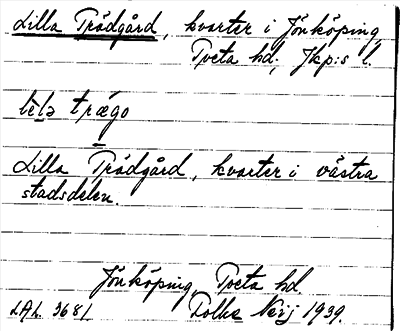 Lilla Trädgård, kvarter i Jönköping,
Tveta hd., Jkp:s l.
lɩ̀lə trægo
Lilla Trädgård, kvarter i västra
stadsdelen.
Jönköping, Tveta hd
LAL. 3681. Folke Neij 1939.